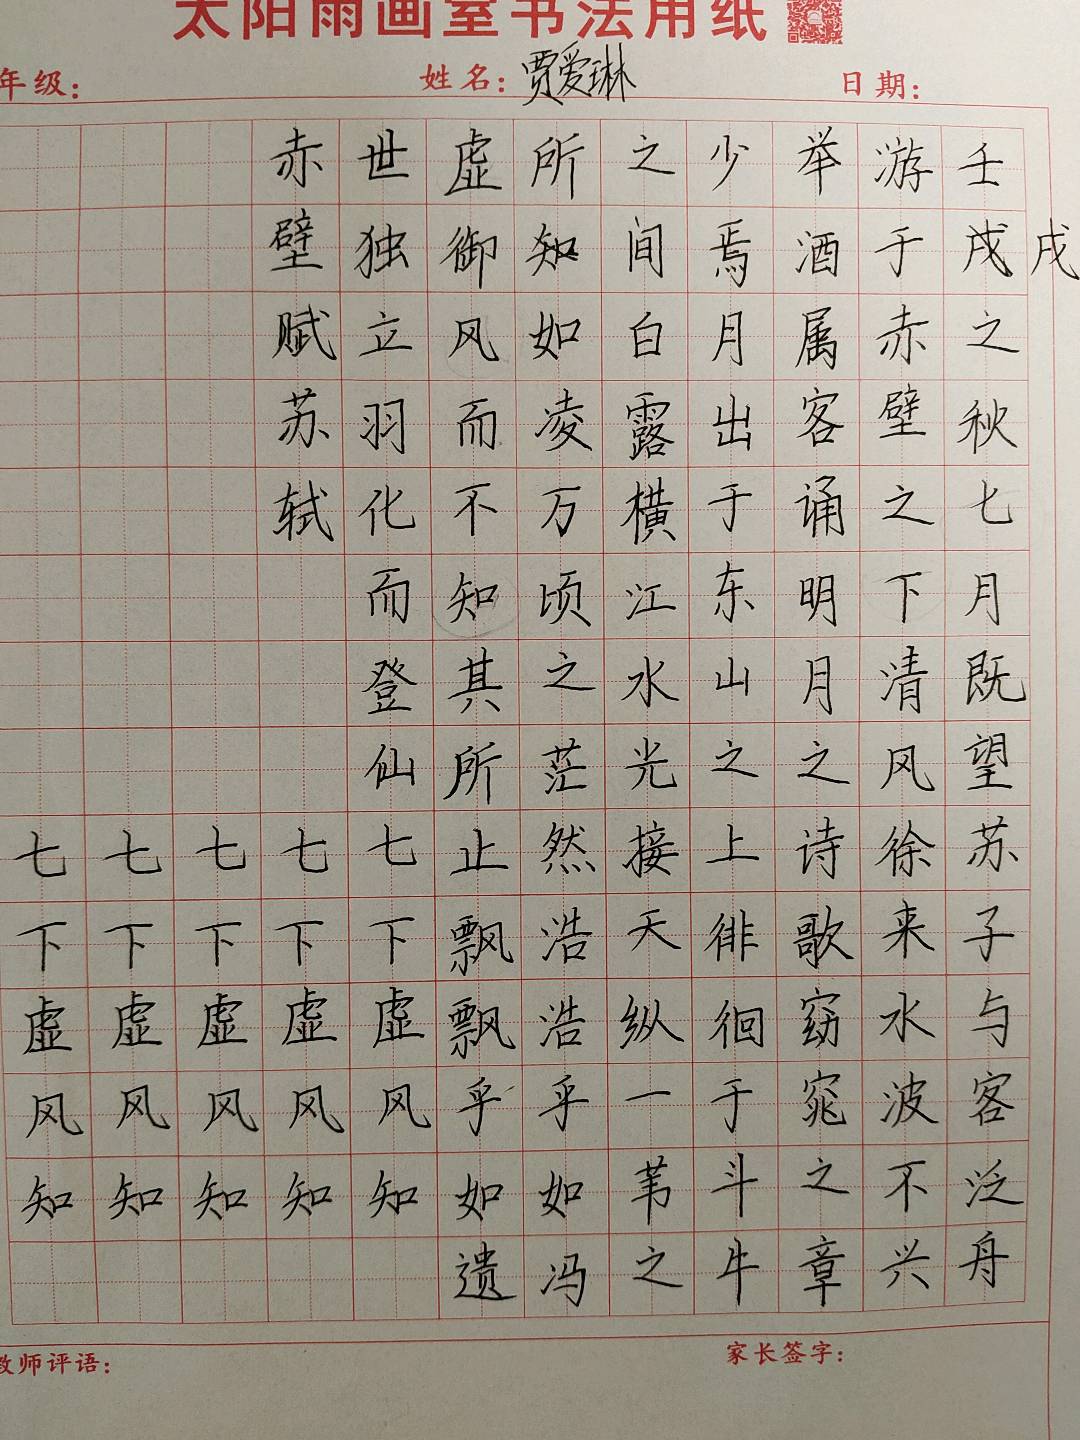 太阳雨画室书法用纸
年级: 姓名: 贾爱琳 日期:
戌
壬戌之秋七月既望苏子与客泛舟
游于赤壁之下清风徐来水波不兴
举酒属客诵明月之诗歌窈窕之章
少焉月出于东山之上徘徊于斗牛
之间白露横江水光接天纵一苇之
所知如凌万顷之茫然浩浩乎如冯
虚御风而不知其所止飘飘乎如遗
世独立羽化而登仙七下虚风知
赤壁赋苏轼七下虚风知
七下虚风知
七下虚风知
七下虚风知
教师评语: 家长签字: